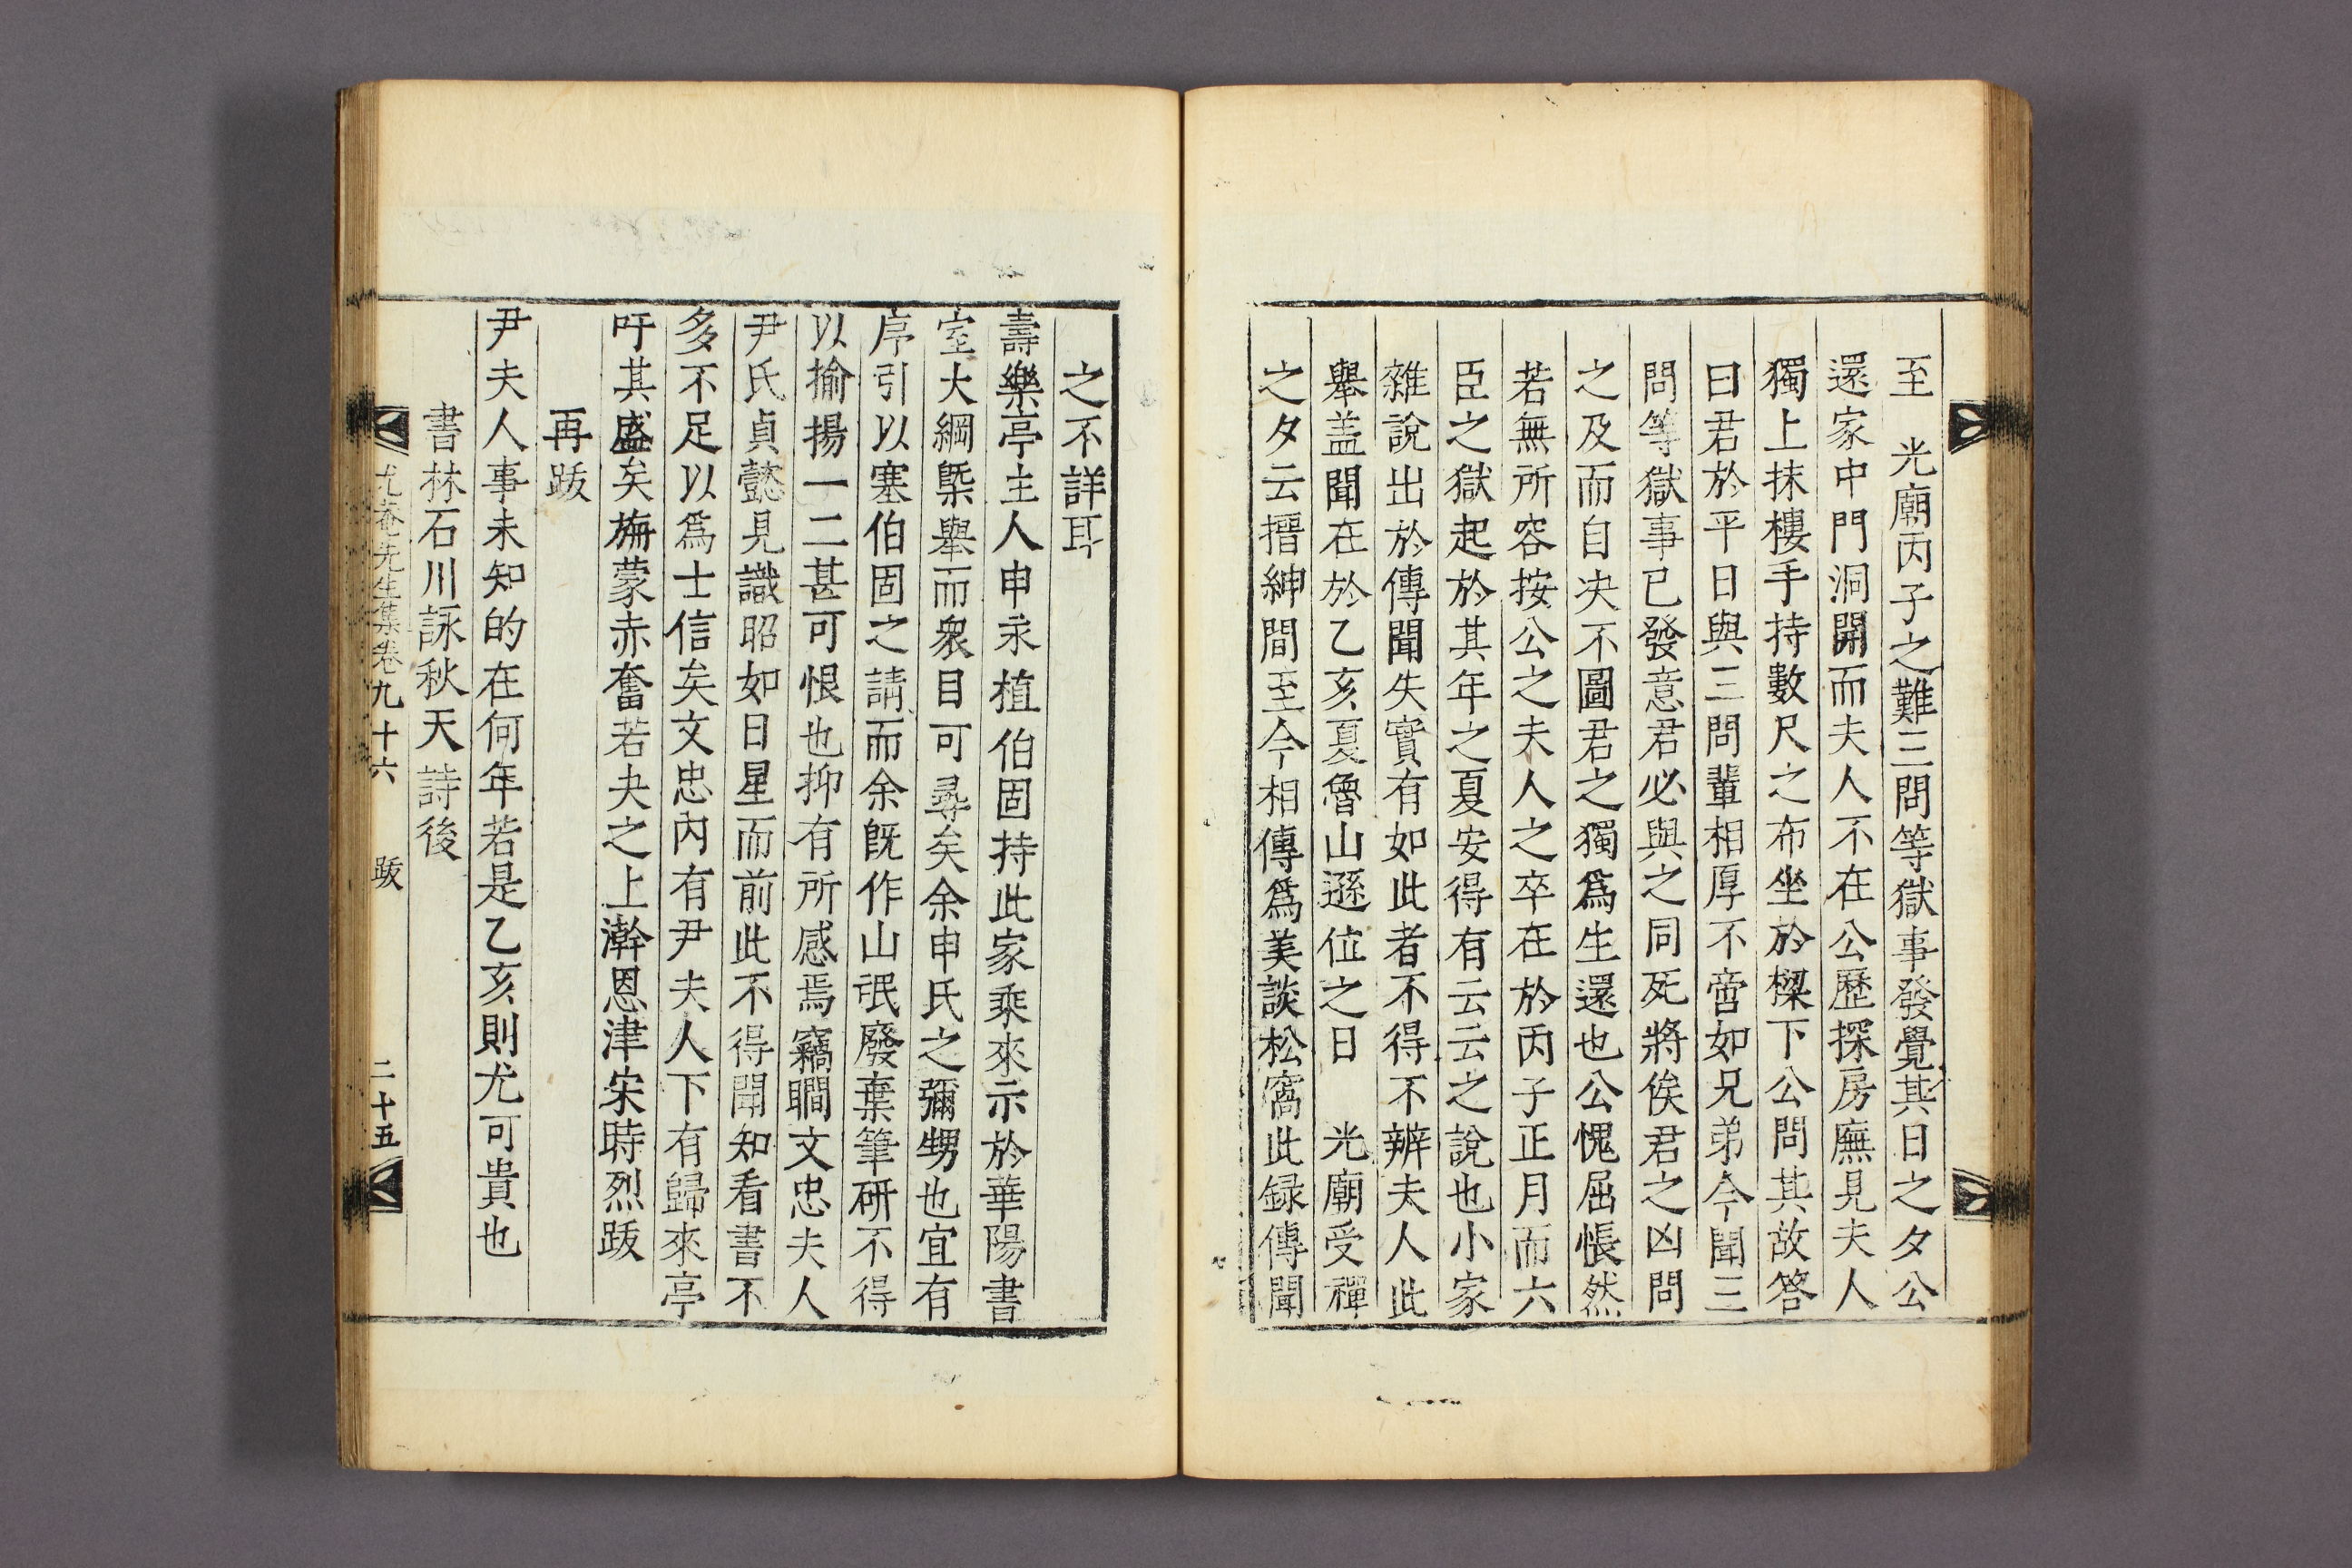 至 光廟丙子之難三問等獄事發覺其日之夕公
還家中門洞開而夫人不在公歷探房廡見夫人
獨上抹樓手持數尺之布坐於樑下公問其故答
曰君於平日與三問輩相厚不啻如兄弟今聞三
問等獄事已發意君必與之同死將俟君之凶問
之及而自决不圖君之獨爲生還也公愧屈悵然
若無所容按公之夫人之卒在於丙子正月而六
臣之獄起於其年之夏安得有云云之說也小家
雜說出於傳聞失實有如此者不得不辨夫人此
舉盖聞在於乙亥夏魯山遜位之日 光廟受禪
之夕云搢紳間至今相傳爲美談松窩此録傳聞
之不詳耳
壽樂亭主人申永植伯固持此家乘來示於華陽書
室大綱槩舉而衆目可尋矣余申氏之彌甥也宜有
序引以塞伯固之請而余旣作山氓廢棄筆硏不得
以揄揚一二甚可恨也抑有所感焉竊瞯文忠夫人
尹氏貞懿見識昭如日星而前此不得聞知看書不
多不足以爲士信矣文忠內有尹夫人下有歸來亭
吁其盛矣旃蒙赤奮若夬之上澣恩津宋時烈跋
再跋
尹夫人事未知的在何年若是乙亥則尤可貴也
書林石川詠秋天詩後
尤菴先生集卷九十六 跋 二十五